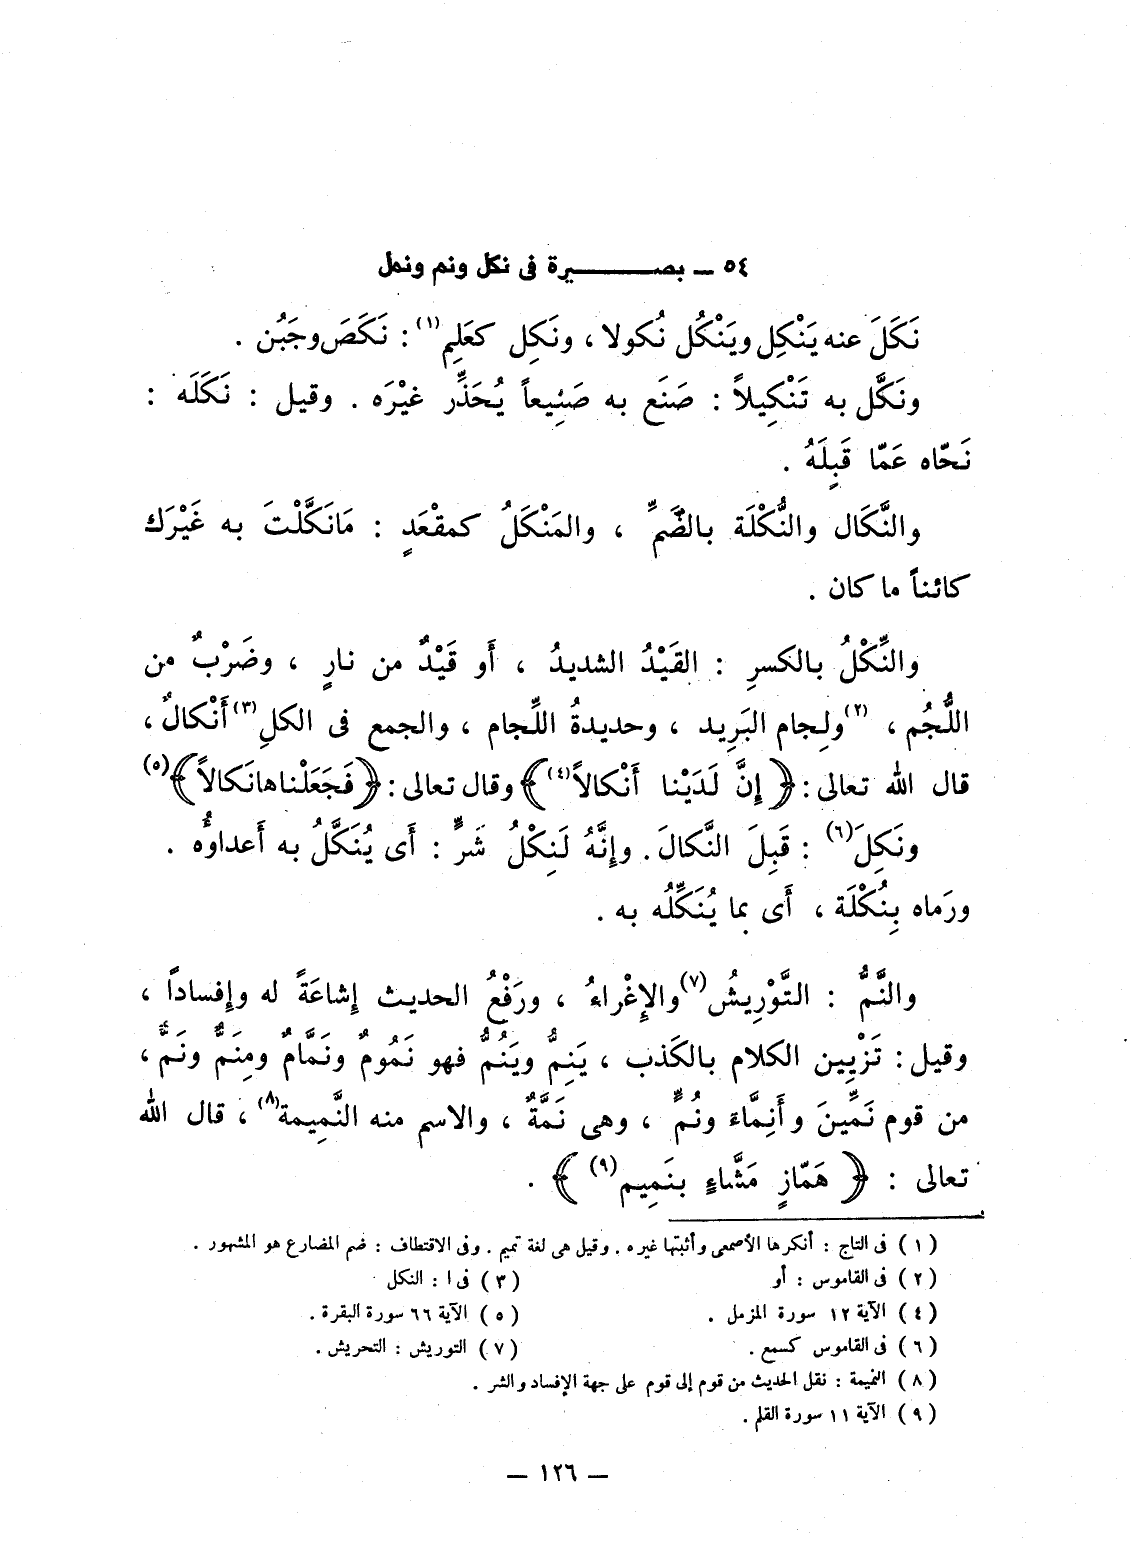 ٥٤ ــ بصــــــــيرة فى نكل ونم ونمل
نَكَلَ عنه يَنْكِل ويَنْكُل نُكولا ، ونَكِل كعَلِم(١) : نَكَصَ وجَبُن .
ونَكَّل به تَنْكِيلاً : صَنَع به صَنِيعاً يُحَذِّر غيْرَه . وقيل : نَكَلَه :
نَحّاه عَمّا قَبِلَهُ .
والنَّكَال والنُّكْلَة بالضَّمِّ ، والمَنْكَلُ كمقْعَدٍ : مَانَكَّلْتَ به غَيْرَك
كائناً ما كان .
والنِّكْلُ بالكسرِ : القَيْدُ الشديدُ ، أَو قَيْدٌ من نارٍ ، وضَرْبٌ من
اللُّجُم ، (٢)ولِجام البَرِيد ، وحديدةُ اللِّجام ، والجمع فى الكلِ(٣) أَنْكالٌ ،
قال الله تعالى : ﴿ إِنَّ لَدَيْنا أَنْكالاً(٤) ﴾ وقال تعالى : ﴿ فَجَعَلْناها نَكالاً ﴾(٥)
ونَكِلَ(٦) : قَبِلَ النَّكالَ . وإِنَّهُ لَنِكْلُ شَرٍّ : أَى يُنَكَّلُ به أَعداوُه .
ورَماه بِنُكْلَة ، أَى بما يُنَكِّلُه به .
والنَّمُّ : التَّوْرِيشُ(٧) والإِغْراءُ ، ورَفْعُ الحديث إِشاعَةً له وإِفساداً ،
وقيل : تَزْيِين الكلام بالكَذب ، يَنِمُّ ويَنُمُّ فهو نَمُومٌ ونَمَّامٌ ومِنَمٌّ ونَمٌّ ،
من قوم نَمِّينَ وأَنِمَّاءَ ونُمٍّ ، وهى نَمَّةٌ ، والاسم منه النَّمِيمة(٨) ، قال الله
تعالى : ﴿ هَمّازٍ مَشَّاءٍ بنَمِيم(٩) ﴾ .
( ١ ) فى التاج : أنكرها الأصمعى وأثبتها غيره . وقيل هى لغة تميم . وفى الاقتطاف : ضم المضارع هو المشهور .
( ٢ ) فى القاموس : أو
( ٣ ) فى ا : النكل
( ٤ ) الآية ١٢ سورة المزمل .
( ٥ ) الآية ٦٦ سورة البقرة .
( ٦ ) فى القاموس كسمع .
( ٧ ) التوريش : التحريش .
( ٨ ) النميمة : نقل الحديث من قوم إلى قوم على جهة الإفساد والشر .
( ٩ ) الآية ١١ سورة القلم .
— ١٢٦ —